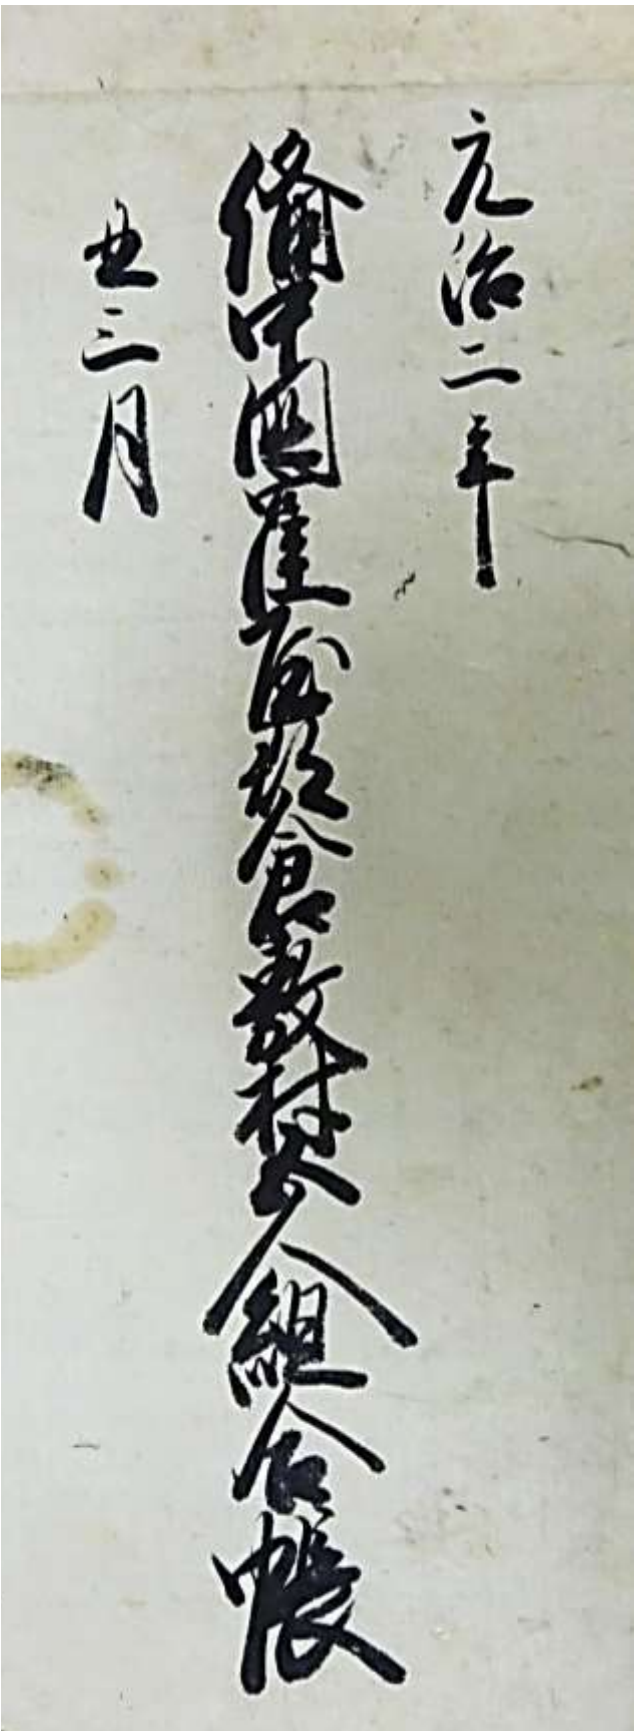 元治二年
備中國窪屋郡倉敷村五人組合帳
丑三月